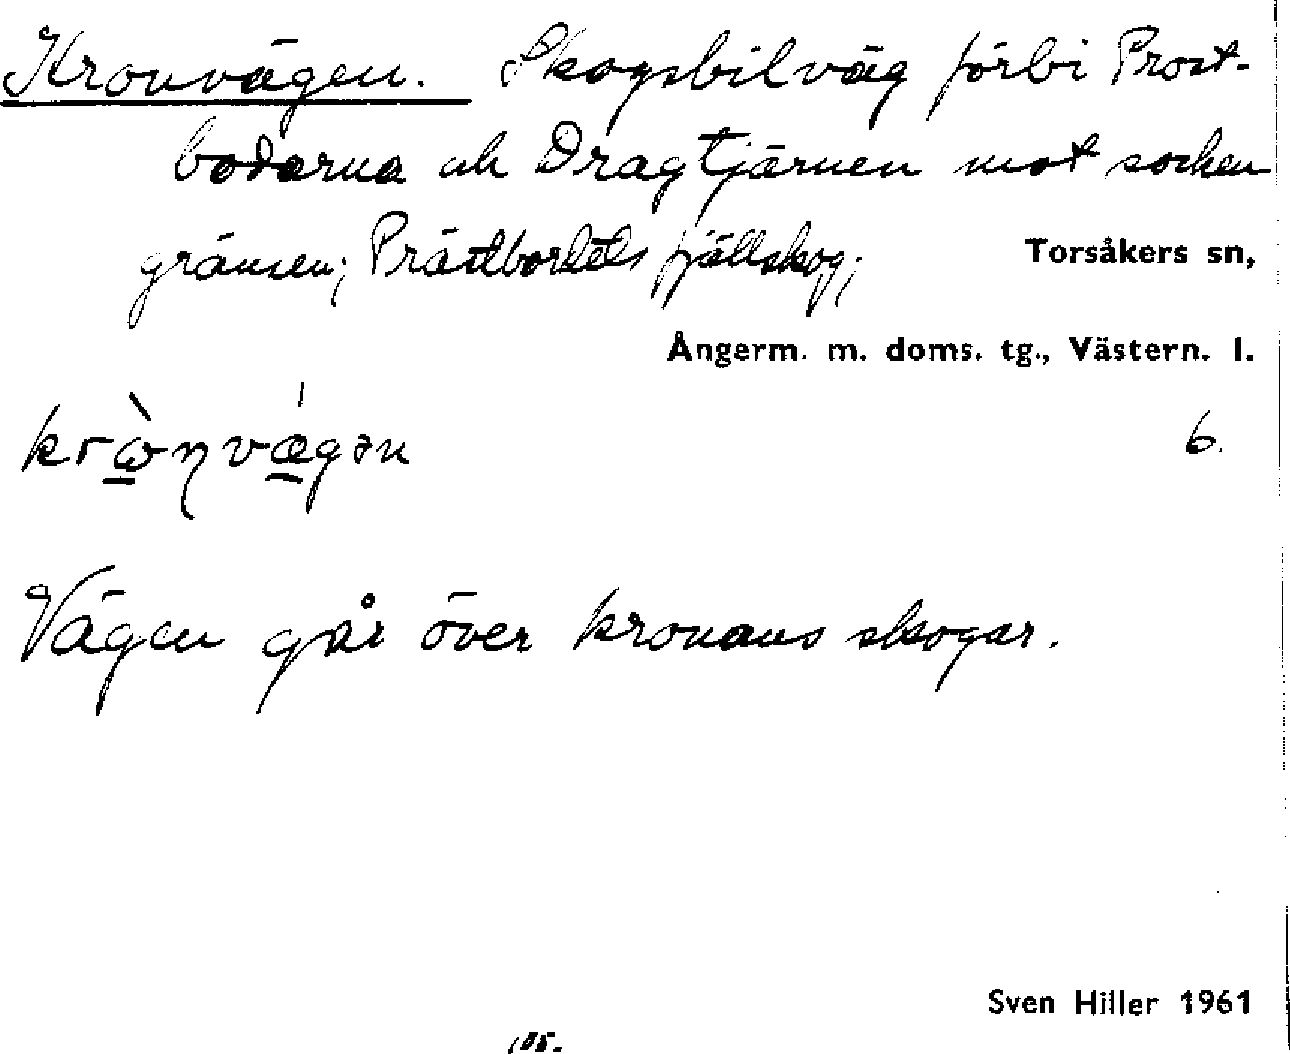 Kronvägen. Skogsbilväg förbi Prost-
bodarna och Dragtjärnen mot socken
gränsen; Prästbordets fjällskog;
Torsåkers sn,
Ångerm. m. doms. tg., Västern. l.
krὼ̱ŋvǽ̱gən
6.
Vägen går över kronans skogar.
Sven Hiller 1961
105.